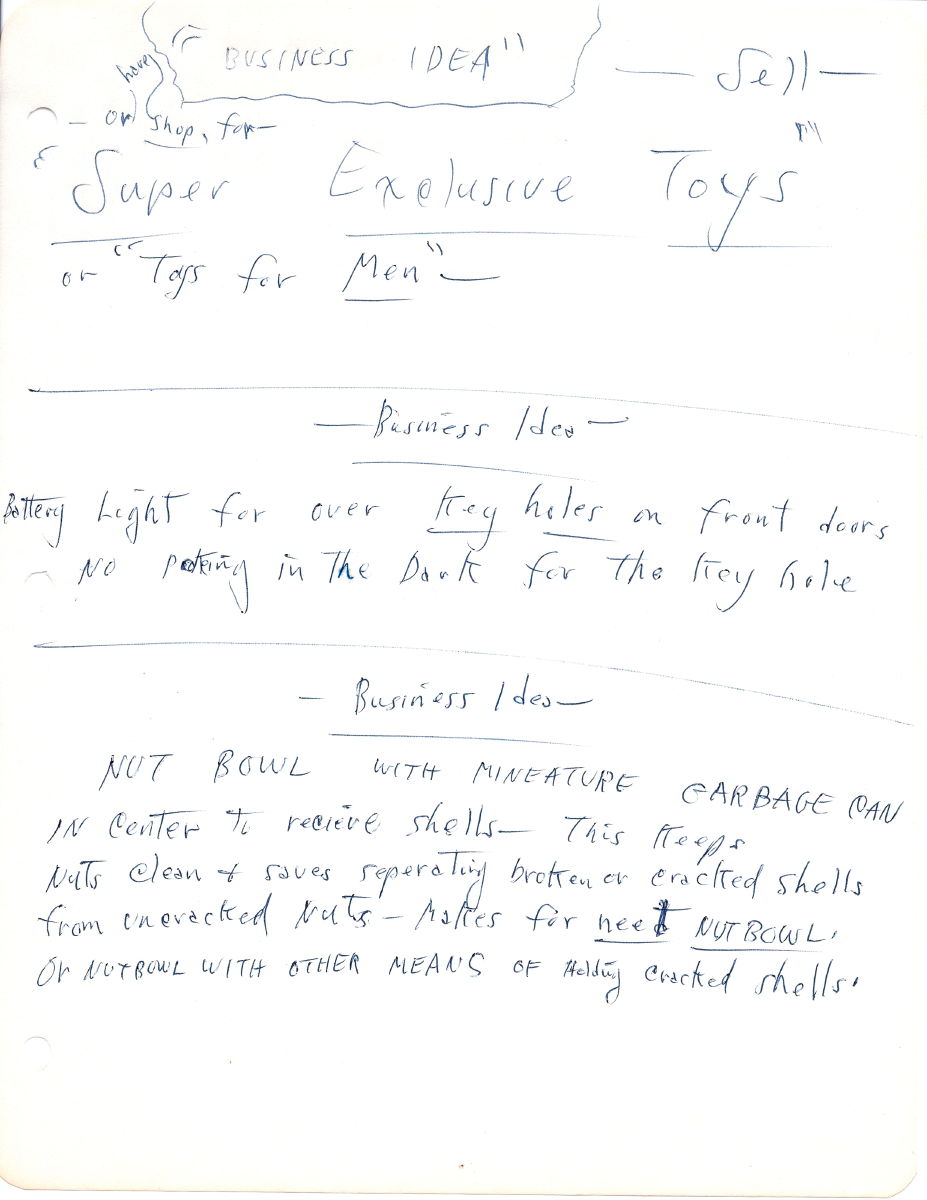 "BUSINESS IDEA" — Sell —
— or have shop, for —
"Super Exclusive Toys"
or "Toys for Men" —
— Business Idea —
Battery Light for over Key holes on front doors
— NO poking in The Dark for the Key hole
— Business Idea —
NUT BOWL WITH MINEATURE GARBAGE CAN
IN Center To recieve shells — This Keeps
Nuts Clean + saves seperating broken or cracked shells
from uncracked Nuts — Makes for neet NUTBOWL.
Or NUTBOWL WITH OTHER MEANS OF Holding Cracked shells.